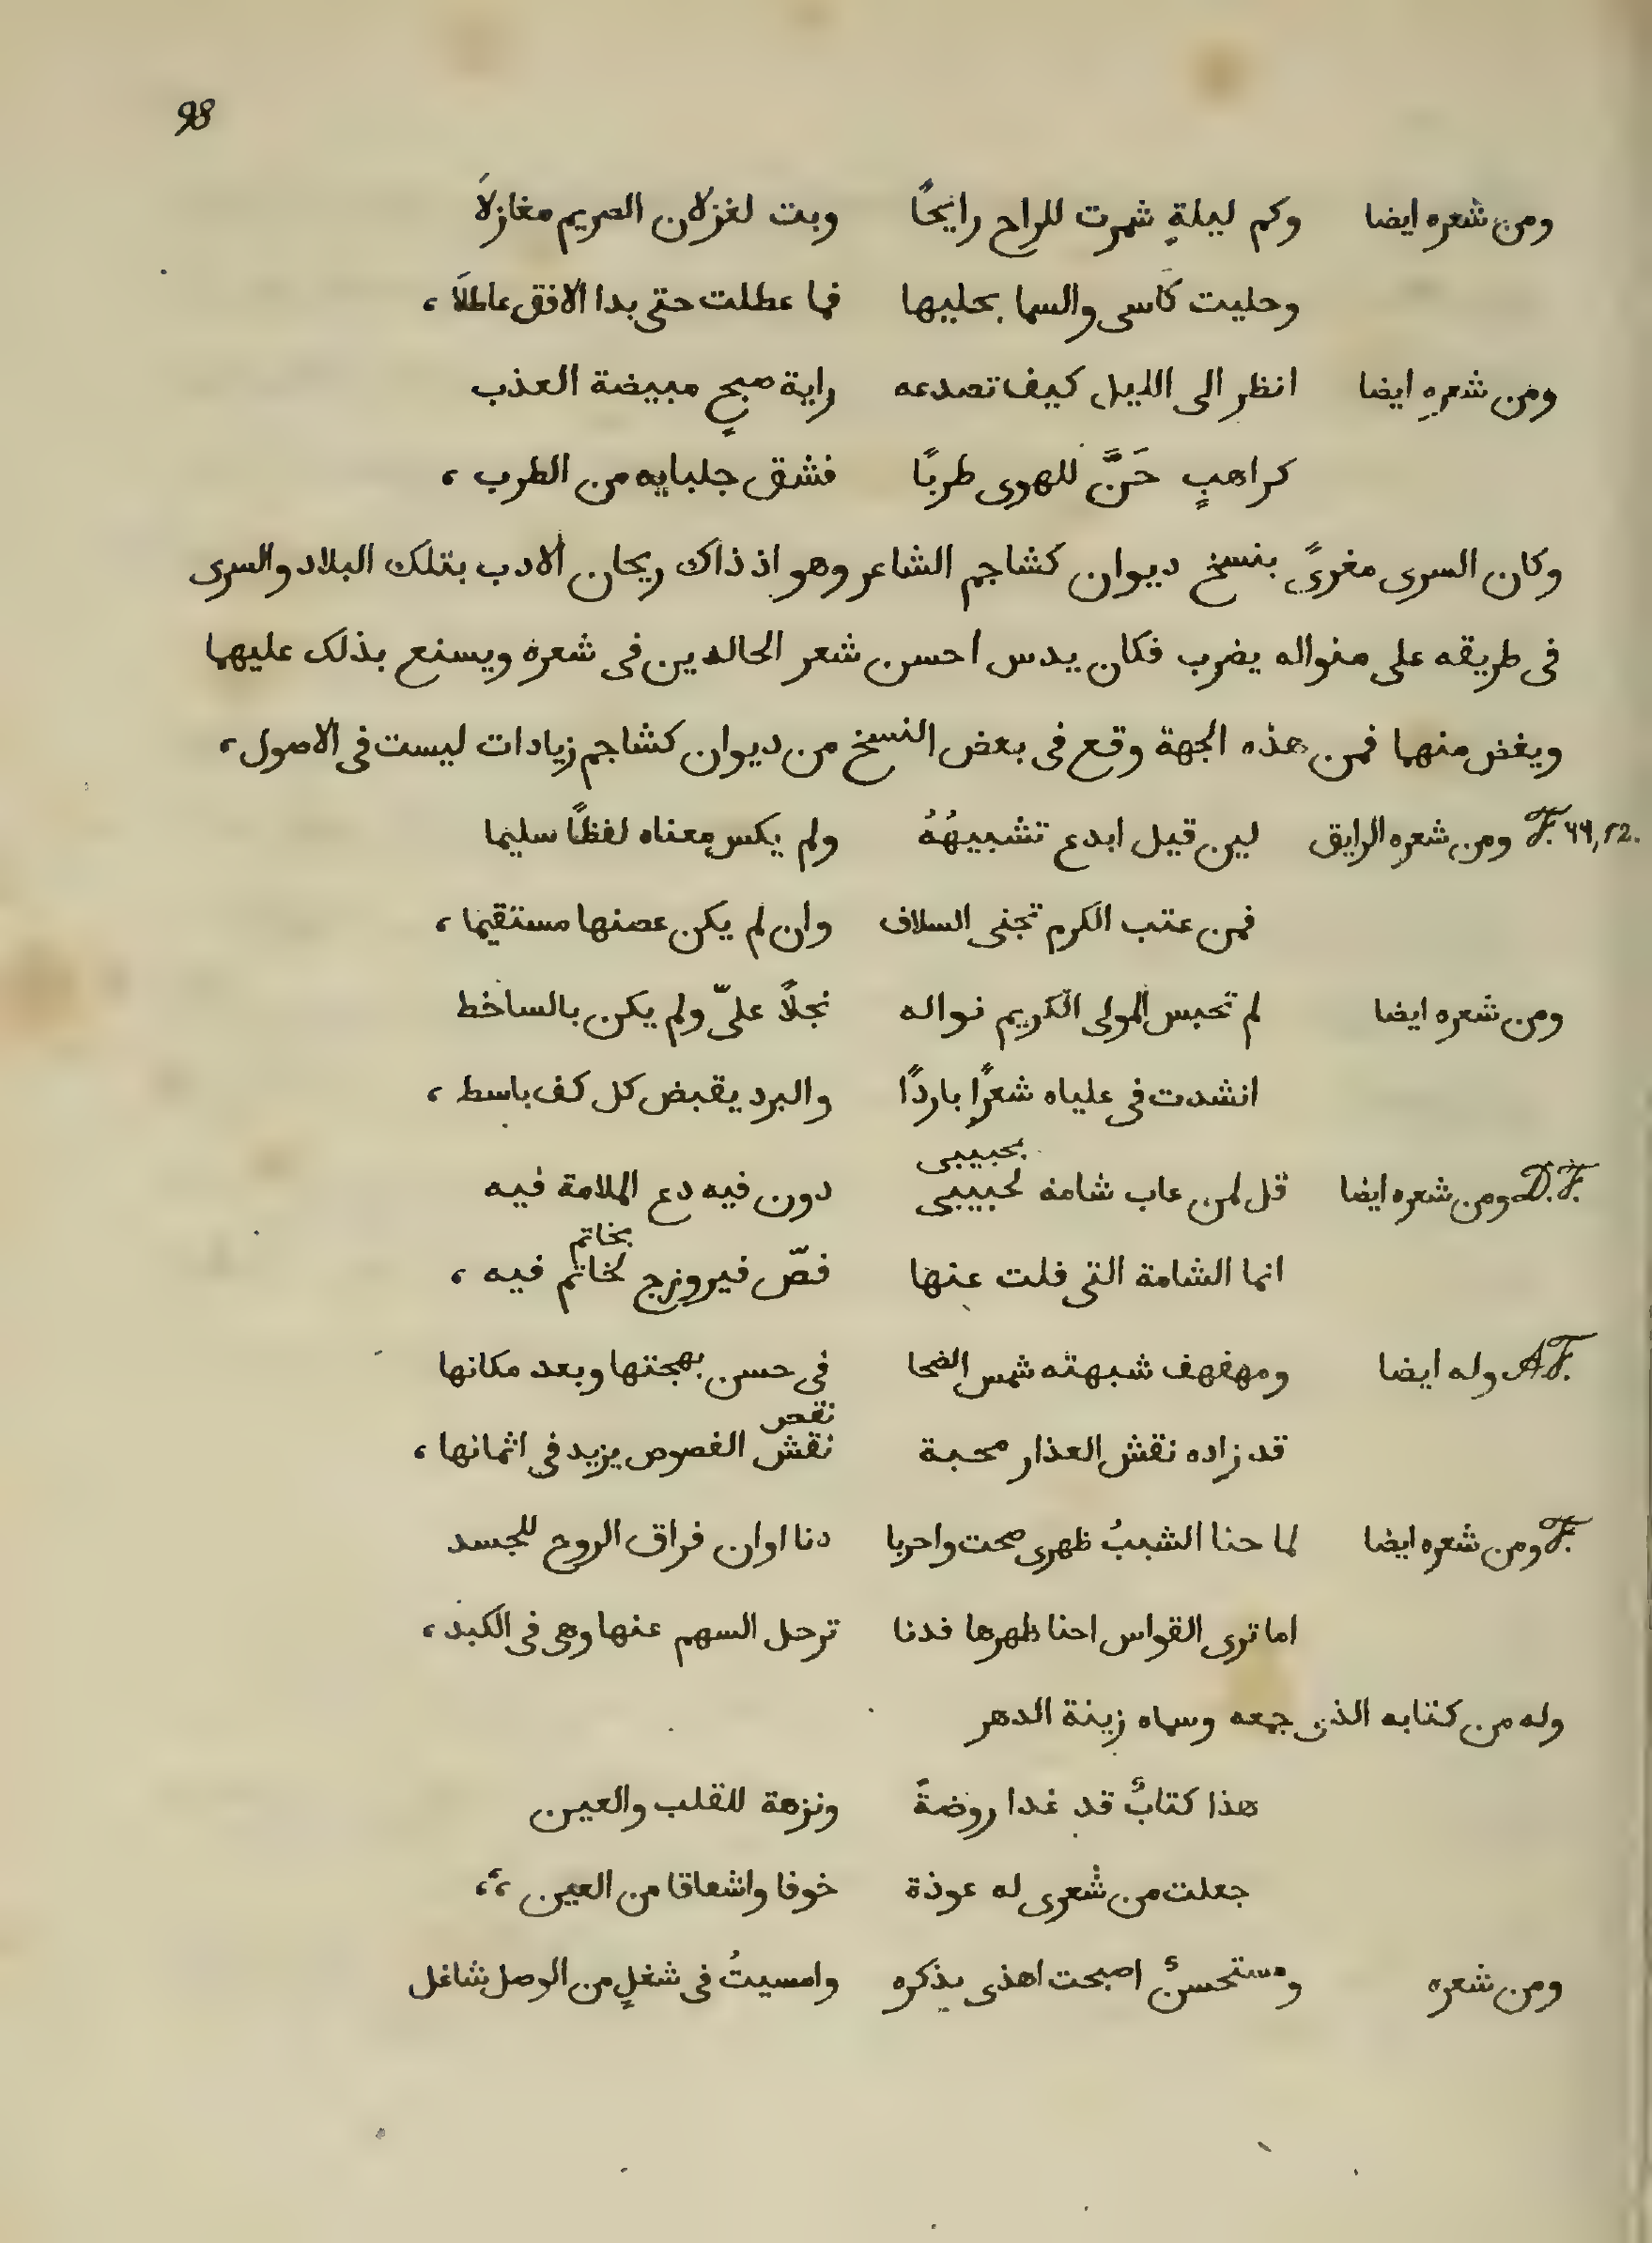 98
ومن شعره ايضا وكم ليلةٍ شمرت للراح رايحًا وبت لغزلان الصريم مغازلاَ
وحليت كاسى والسما بحليها فما عطلت حتى بدا الافق عاطلاَ ،
ومن شعره ايضا انظر الى الليل كيف تصدعه راية صبحٍ مبيضة العذب
كراهبٍ حَنَّ للهوى طربًا فشق جلبابه من الطرب ،
وكان السرى مغرىً بنسخ ديوان كشاجم الشاعر وهو اذ ذاك ريحان الادب بتلك البلاد والسرى
فى طريقه على منواله يضرب فكان يدس احسن شعر الخالديين فى شعره ويسنع بذلك عليهما
ويغض منهما فمن هذه الجهة وقع فى بعض النسخ من ديوان كشاجم زيادات ليست فى الاصول ،
F. 44,12. ومن شعره الرايق لين قيل ابدع تشبيهُهُ ولم يكس معناه لفظًا سليما
فمن عتب الكرم تجنى السلاف وان لم يكن عصنها مستقيما ،
ومن شعره ايضا لم تحبس المولى الكريم نواله نجلاً علىّ ولم يكن بالساخط
انشدت فى علياه شعرًا باردًا والبرد يقبض كل كف باسط ،
بحبيبى
D.F. ومن شعره ايضا قل لمن عاب شامة لحبيبى دون فيه دع الملامة فيه
بخاتم
انما الشامة التى فلت عنها فصّ فيروزج لخاتم فيه ،
A F. وله ايضا ومهفهف شبهته شمس الضحا فى حسن بهجتها وبعد مكانها
قد زاده نقش العذار محبة نقش الفصوص يزيد فى اثمانها ،
F. ومن شعره ايضا لما حنا الشيبُ ظهرى صحت واحربا دنا اوان فراق الروح للجسد
اما ترى القواس احنا ظهرها فدنا ترحل السهم عنها وهى فى الكبد ،
وله من كتابه الذى جمعه وسماه زينة الدهر
هذا كتابٌ قد غدا روضةً ونزهة للقلب والعين
جعلت من شعرى له عوذة خوفا واشفاقا من العين ،،
ومن شعره ومستحسنٌ اصبحت اهذى بذكره وامسيتُ فى شغلٍ من الوصل شاغل